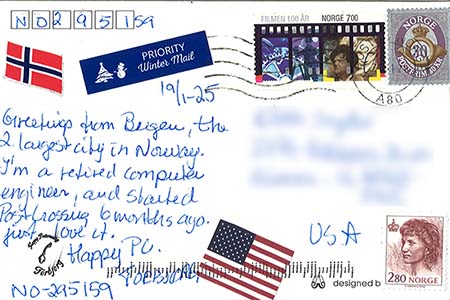 NO295159
PRIORITY
Winter Mail
FILMEN 100 ÅR NORGE 700
NORGE
A80
19/1-25
Greetings from Bergen, the
2. largest city in Norway.
I'm a retired computer
engineer, and started
Postcrossing 6 months ago.
just love it.
Happy PC.
USA
NO-295159
designed b
2.80 NORGE